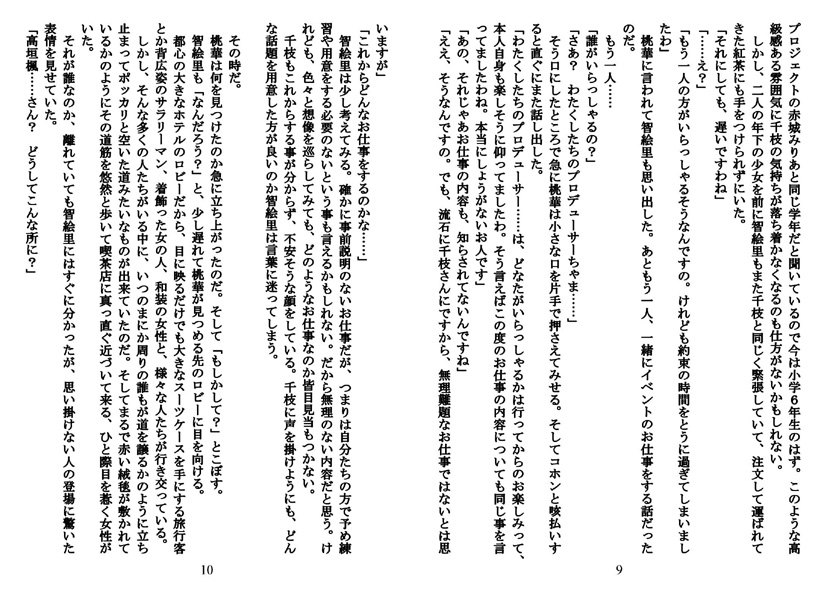 プロジェクトの赤城みりあと同じ学年だと聞いているので今は小学６年生のはず。このような高
級感ある雰囲気に千枝の気持ちが落ち着かなくなるのも仕方がないかもしれない。
しかし、二人の年下の少女を前に智絵里もまた千枝と同じく緊張していて、注文して運ばれて
きた紅茶にも手をつけられずにいた。
「それにしても、遅いですわね」
「……え？」
「もう一人の方がいらっしゃるそうなんですの。けれども約束の時間をとうに過ぎてしまいまし
たわ」
桃華に言われて智絵里も思い出した。あともう一人、一緒にイベントのお仕事をする話だった
のだ。
もう一人……
「誰がいらっしゃるの？」
「さあ？　わたくしたちのプロデューサーちゃま……」
そう口にしたところで急に桃華は小さな口を片手で押さえてみせる。そしてコホンと咳払いす
ると直ぐにまた話し出した。
「わたくしたちのプロデューサー……は、どなたがいらっしゃるかは行ってからのお楽しみって、
本人自身も楽しそうに仰ってましたわ。そう言えばこの度のお仕事の内容についても同じ事を言
ってましたわね。本当にしょうがないお人です」
「あの、それじゃあお仕事の内容も、知らされてないんですね」
「ええ、そうなんですの。でも、流石に千枝さんにですから、無理難題なお仕事ではないとは思
9
いますが」
「これからどんなお仕事をするのかな……」
智絵里は少し考えてみる。確かに事前説明のないお仕事だが、つまりは自分たちの方で予め練
習や用意をする必要のないという事も言えるかもしれない。だから無理のない内容だと思う。け
れども、色々と想像を巡らしてみても、どのようなお仕事なのか皆目見当もつかない。
千枝もこれからする事が分からず、不安そうな顔をしている。千枝に声を掛けようにも、どん
な話題を用意した方が良いのか智絵里は言葉に迷ってしまう。
その時だ。
桃華は何を見つけたのか急に立ち上がったのだ。そして「もしかして？」とこぼす。
智絵里も「なんだろう？」と、少し遅れて桃華が見つめる先のロビーに目を向ける。
都心の大きなホテルのロビーだから、目に映るだけでも大きなスーツケースを手にする旅行客
とか背広姿のサラリーマン、着飾った女の人、和装の女性と、様々な人たちが行き交っている。
しかし、そんな多くの人たちがいる中に、いつのまにか周りの誰もが道を譲るかのように立ち
止まってポッカリと空いた道みたいなものが出来ていたのだ。そしてまるで赤い絨毯が敷かれて
いるかのようにその道筋を悠然と歩いて喫茶店に真っ直ぐ近づいて来る、ひと際目を惹く女性が
いた。
それが誰なのか、離れていても智絵里にはすぐに分かったが、思い掛けない人の登場に驚いた
表情を見せていた。
「高垣楓……さん？　どうしてこんな所に？」
10